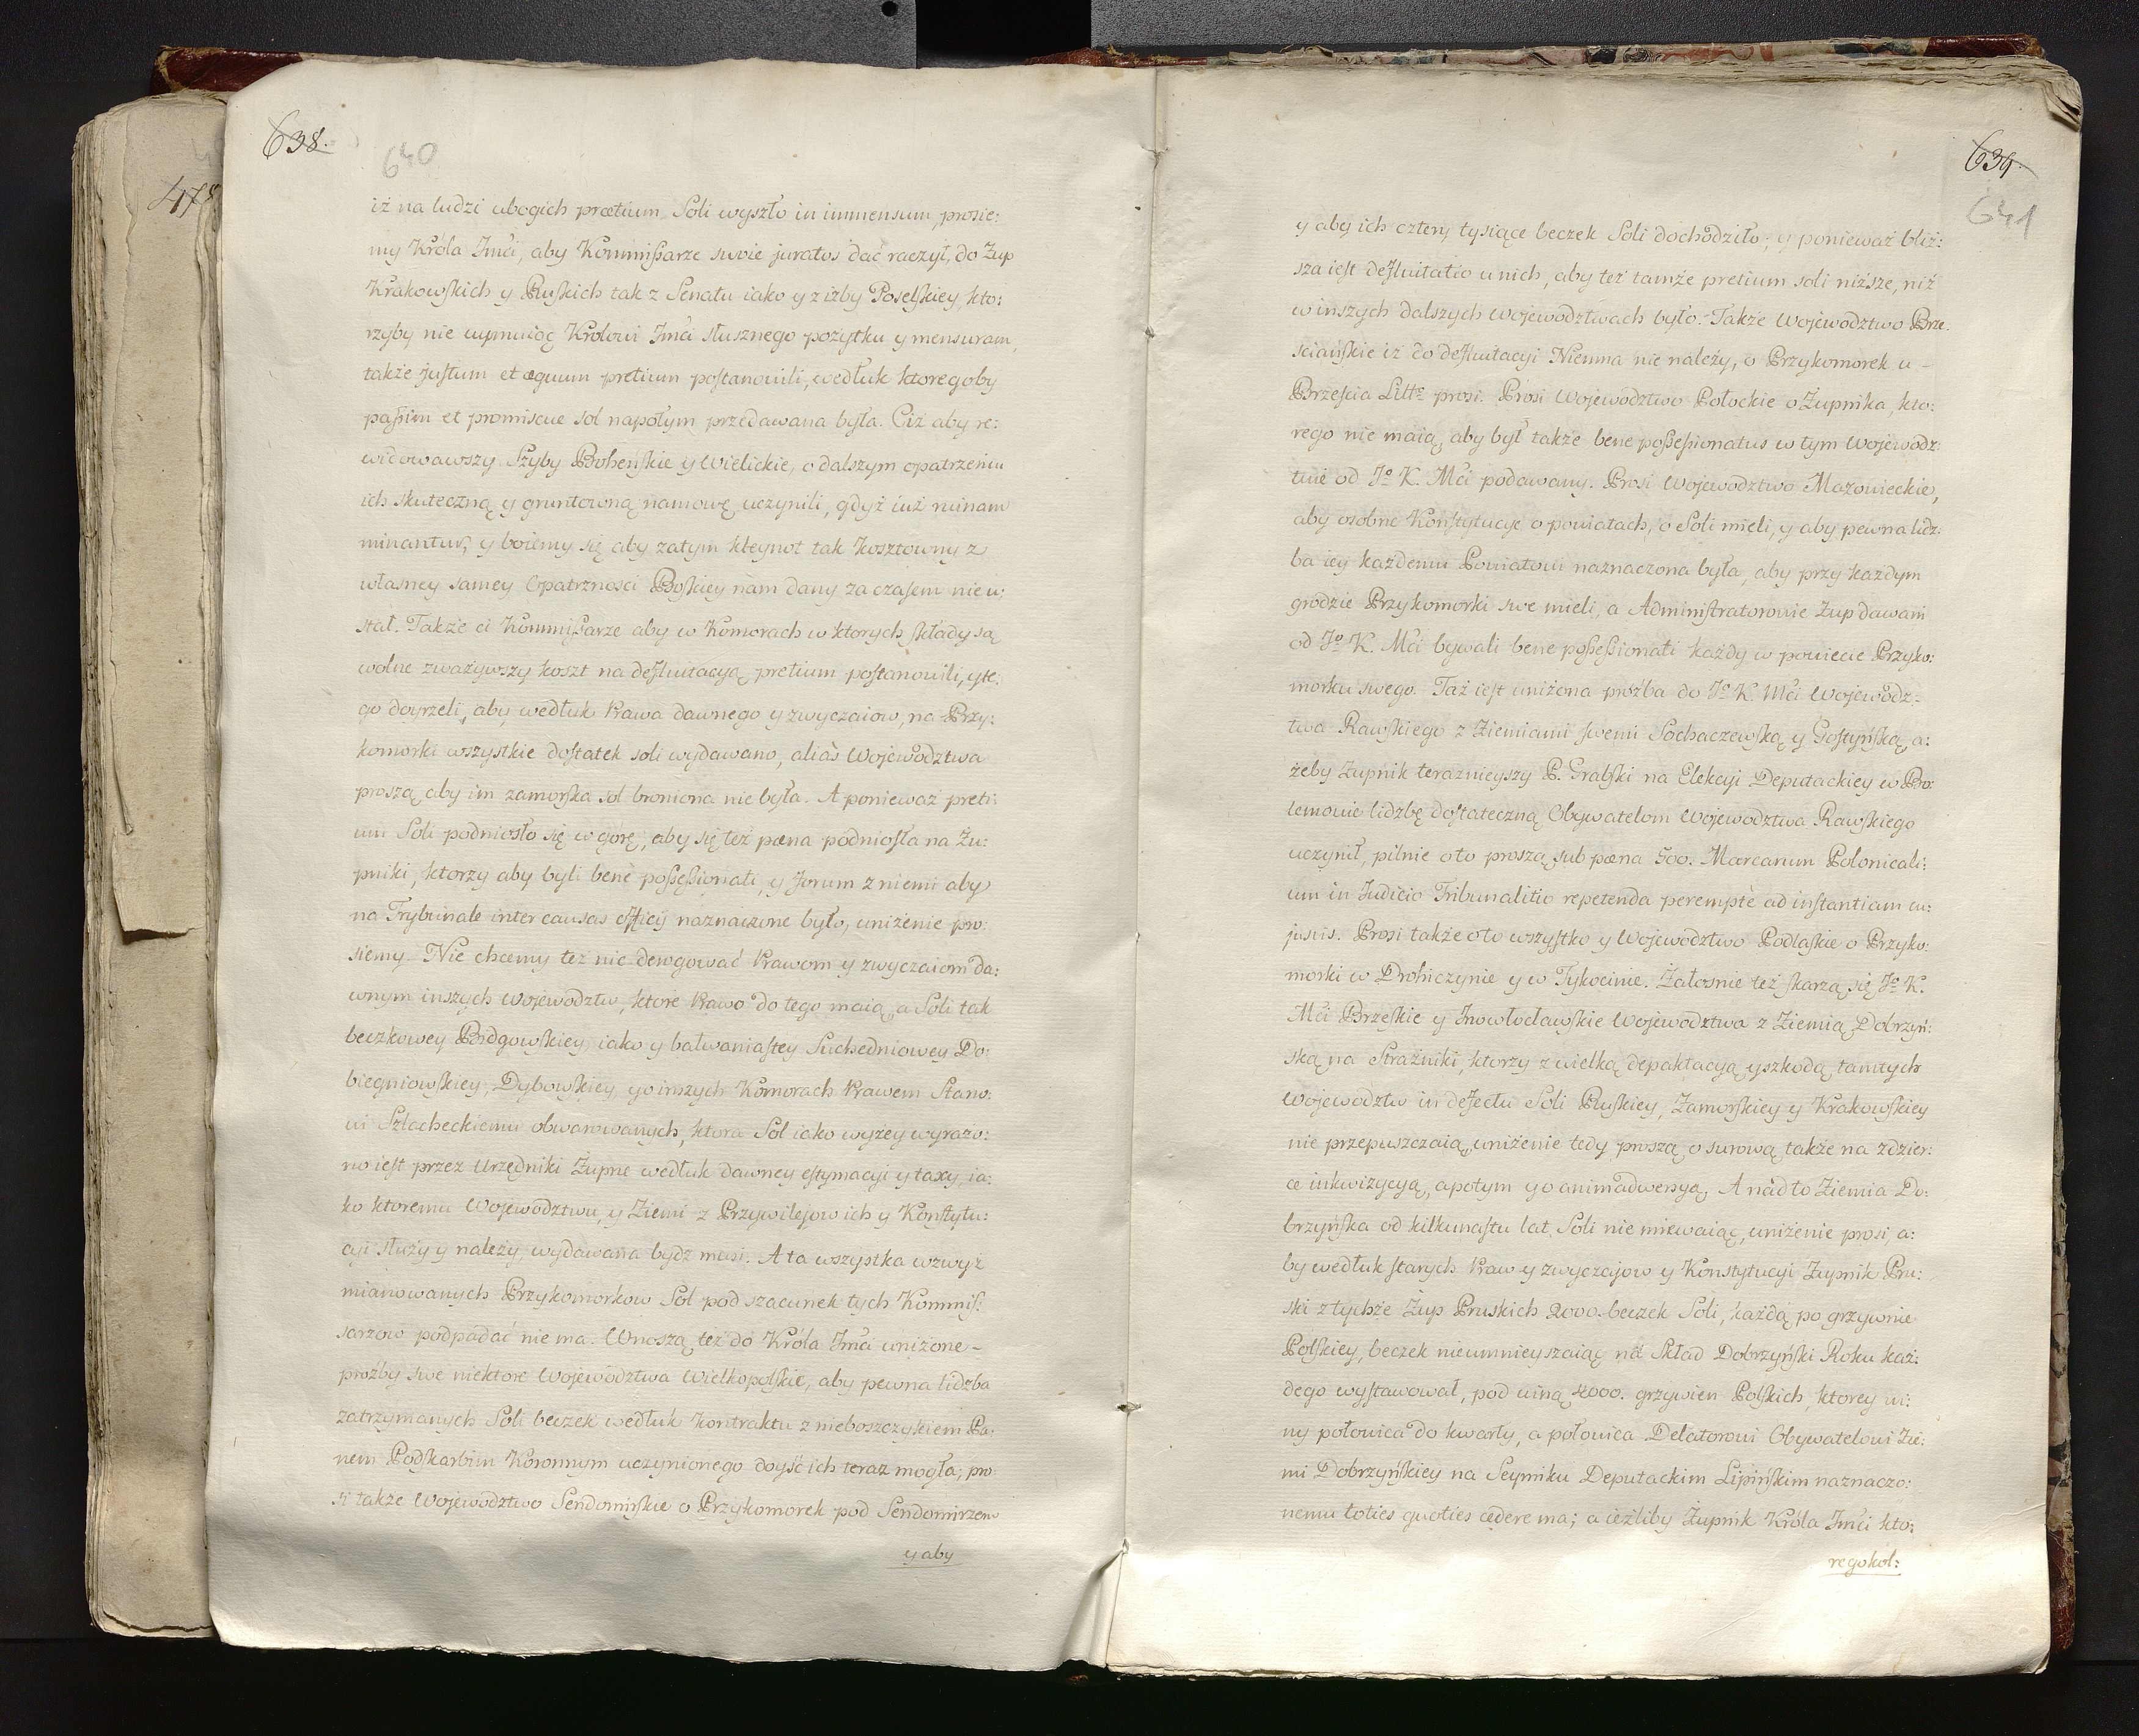 638.
640
iż na ludzi ubogich prœtium Soli wyszło in immensum, prosie:
my Króla Jmći, aby Kommissarze swoie juratos dać raczył, do Zup
Krakowskich y Ruskich tak z Senatu iako y z izby Poselskiey, kto:
rzyby nie uymuiąc Krolowi Jmći słusznego pożytku y mensuram,
także justum et æquum pretium postanowili, wedłuk ktoregoby
passim et promiscue sol napołym przedawana była. Ciż aby re:
widowawszy Szyby Boheńskie y Wielickie, o dalszym opatrzeniu
ich skuteczną y gruntowną namowę uczynili, gdyż iuż ruinam
minantur, y boiemy się aby zatym kleynot tak kosztowny z
własney samey Opatrznosci Boskiey nam dany za czasem nie u:
stał. Także ci Kommissarze aby w Komorach w ktorych składy są
wolne zważywszy koszt na defluitacyą pretium postanowili, y te:
go doyrzeli, aby wedłuk Prawa dawnego y zwyczaiow, na Przy:
komorki wszystkie dostatek soli wydawano, aliàs Wojewodztwa
proszą aby im zamorska sol broniona nie była. A ponieważ preti:
um Soli podniosło się w gorę, aby się też pœna podniosła na Żu:
pniki, ktorzy aby byli benè possessionati, y forum z niemi aby
na Trybunale inter causas officÿ naznaczone było, uniżenie pro:
siemy. Nie chcemy też nic derogować Prawom y zwyczaiom da:
wnym inszych Wojewodztw, ktore Prawo do tego maią, a Soli tak
beczkowey Bidgowskiey, iako y bałwaniastey Suchedniowey Do:
biegniowskiey, Dybowskiey, y o inszych Komorach Prawem Stano:
wi Szlacheckiemu obwarowanych, ktora Sol iako wyżey wyrażo:
no iest przez Urzędniki Żupne wedłuk dawney estymacyi y taxy, ia:
ko ktoremu Wojewodztwu, y Ziemi z Przywilejow ich y Konstytu:
cyi służy y należy, wydawana bydź musi. A ta wszystka wzwyż
mianowanych Przykomorkow Sol pod szacunek tych Kommis:
sarzow podpadać nie ma. Wnoszą też do Króla Jmći uniżone
proźby swe niektore Wojewodztwa Wielkopolskie, aby pewna lidzba
zatrzymanych Soli beczek wedłuk kontraktu z nieboszczykiem Pa:
nem Podskarbim Koronnym uczynionego doyść ich teraz mogła; pro:
si także Wojewodztwo Sendomirskie o Przykomorek pod Sendomirzem
y aby
639.
641
y aby ich cztery tysiące beczek Soli dochodziło; y ponieważ bliż:
sza iest defluitatio u nich, aby też tamże pretium soli niższe, niż
w inszych dalszych Wojewodztwach było. Także Wojewodztwo Brze:
sciańskie iż do defluitacyi Niemna nie należy, o Przykomorek u
Brzescia Litt: prosi. Prosi Wojewodztwo Połockie o Żupnika, kto:
rego nie maią, aby był także bene possessionatus w tym Wojewodz:
twie od Jº K. Mći podawany. Prosi Wojewodztwo Mazowieckie,
aby osobne Konstytucye o powiatach, o Soli mieli, y aby pewna lidz:
ba iey każdemu Powiatowi naznaczona była, aby przy każdym
grodzie Przykomorki swe mieli, a Administratorowie Zup dawani
od Jº K. Mći bywali bene possessionati każdy w powiecie Przyko:
morku swego. Taż iest uniżona proźba do Jº K. Mći Wojewodz:
twa Rawskiego z Ziemiami swemi Sochaczewską y Gostyńską, a:
żeby Żupnik teraznieyszy P. Grabski na Elekcyi Deputackiey w Bo:
lemowie lidzbę dostateczną Obywatelom Wojewodztwa Rawskiego
uczynił, pilnie o to proszą sub pœna 500. Marcarum Polonicali:
um in Judicio Tribunalitio repetenda peremptè ad instantiam cu:
jusvis. Prosi także o to wszystko y Wojewodztwo Podlaskie o Przyko:
morki w Drohiczynie y w Tykocinie. Żałosnie też skarżą się Jº K.
Mći Brzeskie y Jnowłocławskie Wojewodztwa z Ziemią Dobrzyń:
ską na Strażniki, ktorzy z wielką depaktacyą y szkodą tamtych
Wojewodztw in defectu Soli Ruskiey, Zamorskiey y Krakowskiey
nie przepuszczaią, uniżenie tedy proszą o surową także na zdzier:
ce inkwizycyą, a potym y o animadwersyą. A nadto Ziemia Do:
brzyńska od kilkunastu lat Soli nie miewaiąc, uniżenie prosi, a:
by wedłuk starych Praw y zwyczajow y Konstytucyi Żupnik Pru:
ski z tychże Żup Pruskich 2000. beczek Soli, każdą po grzywnie
Polskiey, beczek nieumnieyszaiąc na Skład Dobrzyński Roku każ:
dego wystawował, pod winą 4000. grzywien Polskich, ktorey wi:
ny połowica do kwarty, a połowica Delatorowi Obywatelowi Zie:
mi Dobrzyńskiey na Seymiku Deputackim Lipińskim naznaczo:
nemu toties quoties cędere ma; a ieżliby Żupnik Króla Jmći kto:
regokol: